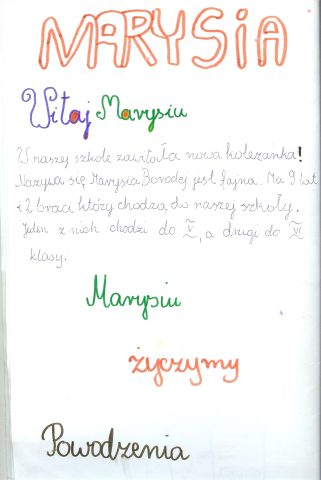 MARYSIA
Witaj Marysiu
W naszej szkole zawitała nowa koleżanka!
Nazywa się Marysia Borodej jest fajna. Ma 9 lat
i 2 braci którzy chodzą do naszej szkoły.
Jeden z nich chodzi do V, a drugi do VI
klasy.
Marysiu
życzymy
Powodzenia